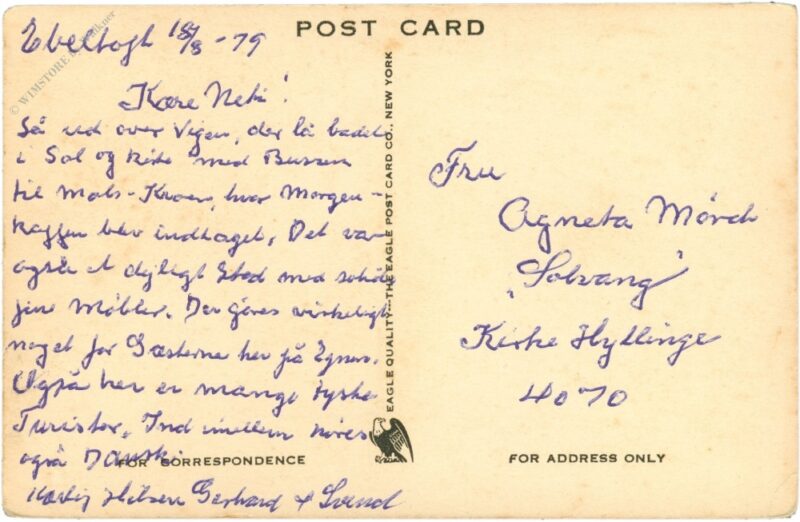 POST CARD
Ebeltoft 18/8 - 79
Kære Neti!
Så ud over Vigen, der lå badet
i Sol og kikte med Bussen
til Mols-Kroen, hvor Morgen-
kaffen blev indtaget. Det var
også et dejligt Sted med
fine Møbler. Der gøres virkeligt
noget for Gæsterne her på Egnen.
Også her er mange tyske
Turister. Ind imellem høres
også Dansk.
Kærlig Hilsen Gerhard & Svend
Fru
Agneta Mörch
"Solvang"
Kirke Hyllinge
4070
FOR CORRESPONDENCE
FOR ADDRESS ONLY
EAGLE QUALITY-THE EAGLE POST CARD CO., NEW YORK
© WIMSTORE